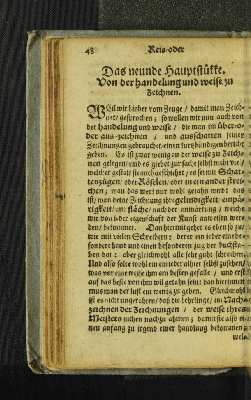 48 Reis-oder
Das neunde Hauptstükke.
Von der handelung und weise zu
Zeichnen.
WEil wir bisher vom Zeuge / damit man Zeich-
net / gesprochen; so wollen wir nun auch von
der handelung und weise / die man im
aus-zeichnen / und ausscharten seiner
Zeichnungen gebrauchet / einen kurtzbündigen bericht
geben. Es ist zwar wenig an der weise zu Zeich-
nen gelegen / und es gielt zur sache selbst nicht viel / in
welcher gestalt sie auch geschiehet / es sei mit
oder Röselen / oder in einander
chen / wan das werk nur wohl gerahten
ist / man deine Zeichnung ihre
nach der anwartung / wie
wir von ieder eigenschaft der Kunst anweisen
den / bekommet. Dan hiermit gehet es eben so zu /
wie mit vielen Schreibern; derer ein ieder eine be-
sondere hand und einen besonderen zug der buchsta-
ben hat: aber gleichwohl alle sehr guhte schreiben.
Und also solte wohl ein ieder alhier selbst zusehen /
was vor eine weise ihm am besten gefalle / und erst
auf das beste von ihm wil getahn sein: dan hierinnen
mus man der lust ein wenig zu geben. Gleichwohl
ist es nicht ungerahten / daß die lehrlinge / im Nach-
zeichnen der Zeichnungen / der weise ihres
Meisters suchen nachzu ahmen; damit sie also ei-
nen anfang zu irgend einer handlung bekommen